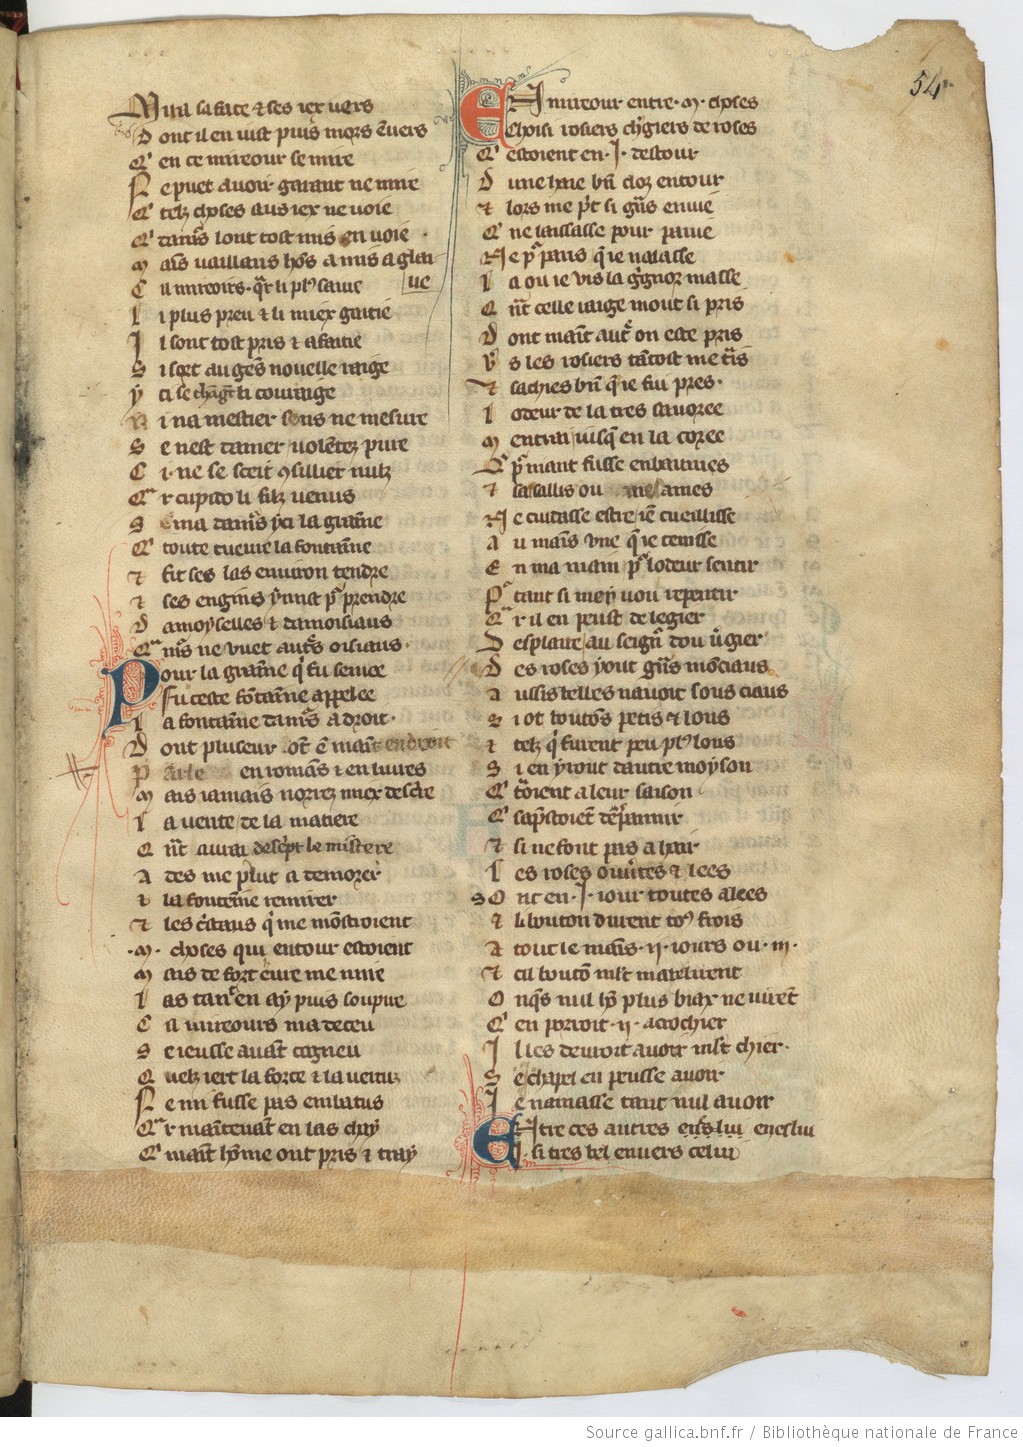 54
Mira sa face et ses iex vers
Dont il en iut puis mors envers
Et en ce mireour se mire
Ne puet avoir garant ne mire
Et telz choses aus iex ne voie
Et damrs lont tost mis en voie
Mais vaillans hõs a mis a glai
ue
Cil mireoirs. qr li pl9 saive
Li plus preu et li miex gaitie
Il sont tost pris et afaitie
Si sort au gens nouelle raige
yci se chãgẽt li couraige
Si na mestier sens ne mesure
Se nest damer volẽtez pure
Ci ne se sceit ꝯsillier nulz
Car cupido li filz venus
Sema damrs yci la graine
Et toute tueuve la fontaine
et fit ses las environ tendre
et ses engins y mist pr prendre
Damoyselles et damoisiaus
Car mrs ne vuet autres oisiaus
Pour la graine q̃ fu semee
Fu ceste fontainne appelee
La fontainne damrs a droit
Dont pluseur õt ẽ maint endroit
Parle en romãs et en livres
Mais iamais norrez miex descrire
La verite de la matiere
Cũt aurai descript le mistere
Ades me plut a demorer
A la fonteinne remirer
et les cristaus qi me mõstroient
.M. choses qui entour estoient
Mais de fort eure me mire
Las tant en ay puis soupire
Cil mireours ma deceu
Se ieusse avãt cogneu
Quelz iert la force et la vertuz
Ne mi fusse pas embatus
Car maintenãt en las chay
Et maint hõme ont pris et tray
El mireour entre .M. choses
Choisi rosiers chargiers de roses
Et estoient en .I. destour
Dune haie bñ cloz entour
et lors me prit si grãs envie
Et ne laissasse pour pavie
Ne pr paris q̃ ie nalasse
La ou ie vis la grignor masse
Cũt celle raige mout si pris
Dont maint autre on este pris
Vers les rosiers tãtost me trais
et sachies bñ q̃ ie fui pres
Lodeur de la tres savoree
Mentrai iusq̃ en la coree
Et pr niant fusse enbaumes
et sasallis ou mesames
Ne cuidasse estre ien cueillisse
Au mains vne q̃ ie tenisse
En ma main pr lodeur sentir
Pr tant si mey vou repentir
Car il en peust de legier
Desplaire au seignr dou vergier
Des roses y out grãs mõciaus
Aussi belles navoit sous ciaus
Si ot boutõs petis et lons
et telz q̃ furent peu pl9 lons
Si en y rout dautre moyson
Et troient a leur saison
Et saprestoient despanir
et si ne font pas a hair
Les roses ouvertes et lees
Sont en .I. iour toutes alees
Et li bouton durent to9 frois
A tout le mains .II. iours ou .III.
et cil boutõ mlt matalirent
Onqs nul lieu plus biax ne virent
Et en porroit .II. acrochier
Il les deuroit avoir mlt chier
Se chapel en peusse avoir
Ie namasse tant nul avoir
Entre ces autres eisslui eneslui
.I. si tres bel envers celui
Source gallica.bnf.fr / Bibliothèque nationale de France